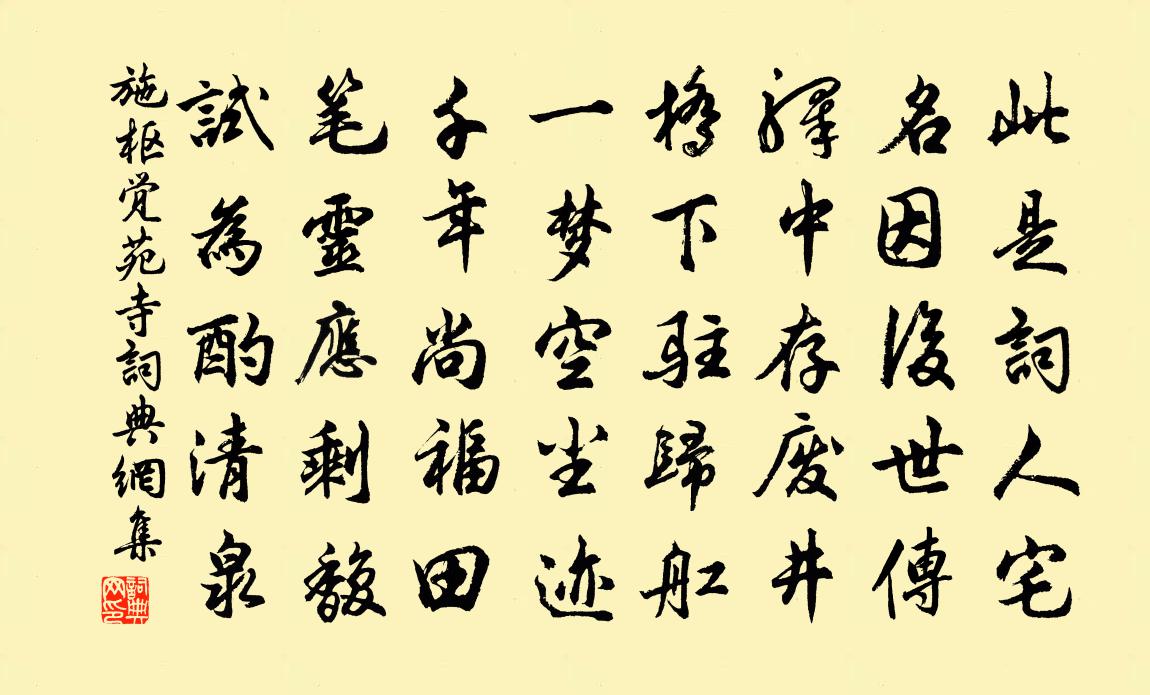 此是詞人宅
名因後世傳
驛中存废井
橋下駐歸舡
一梦空尘迹
千年尚福田
笔靈應剩馥
試為酌清泉
施枢觉苑寺詞典網集
詞典网印